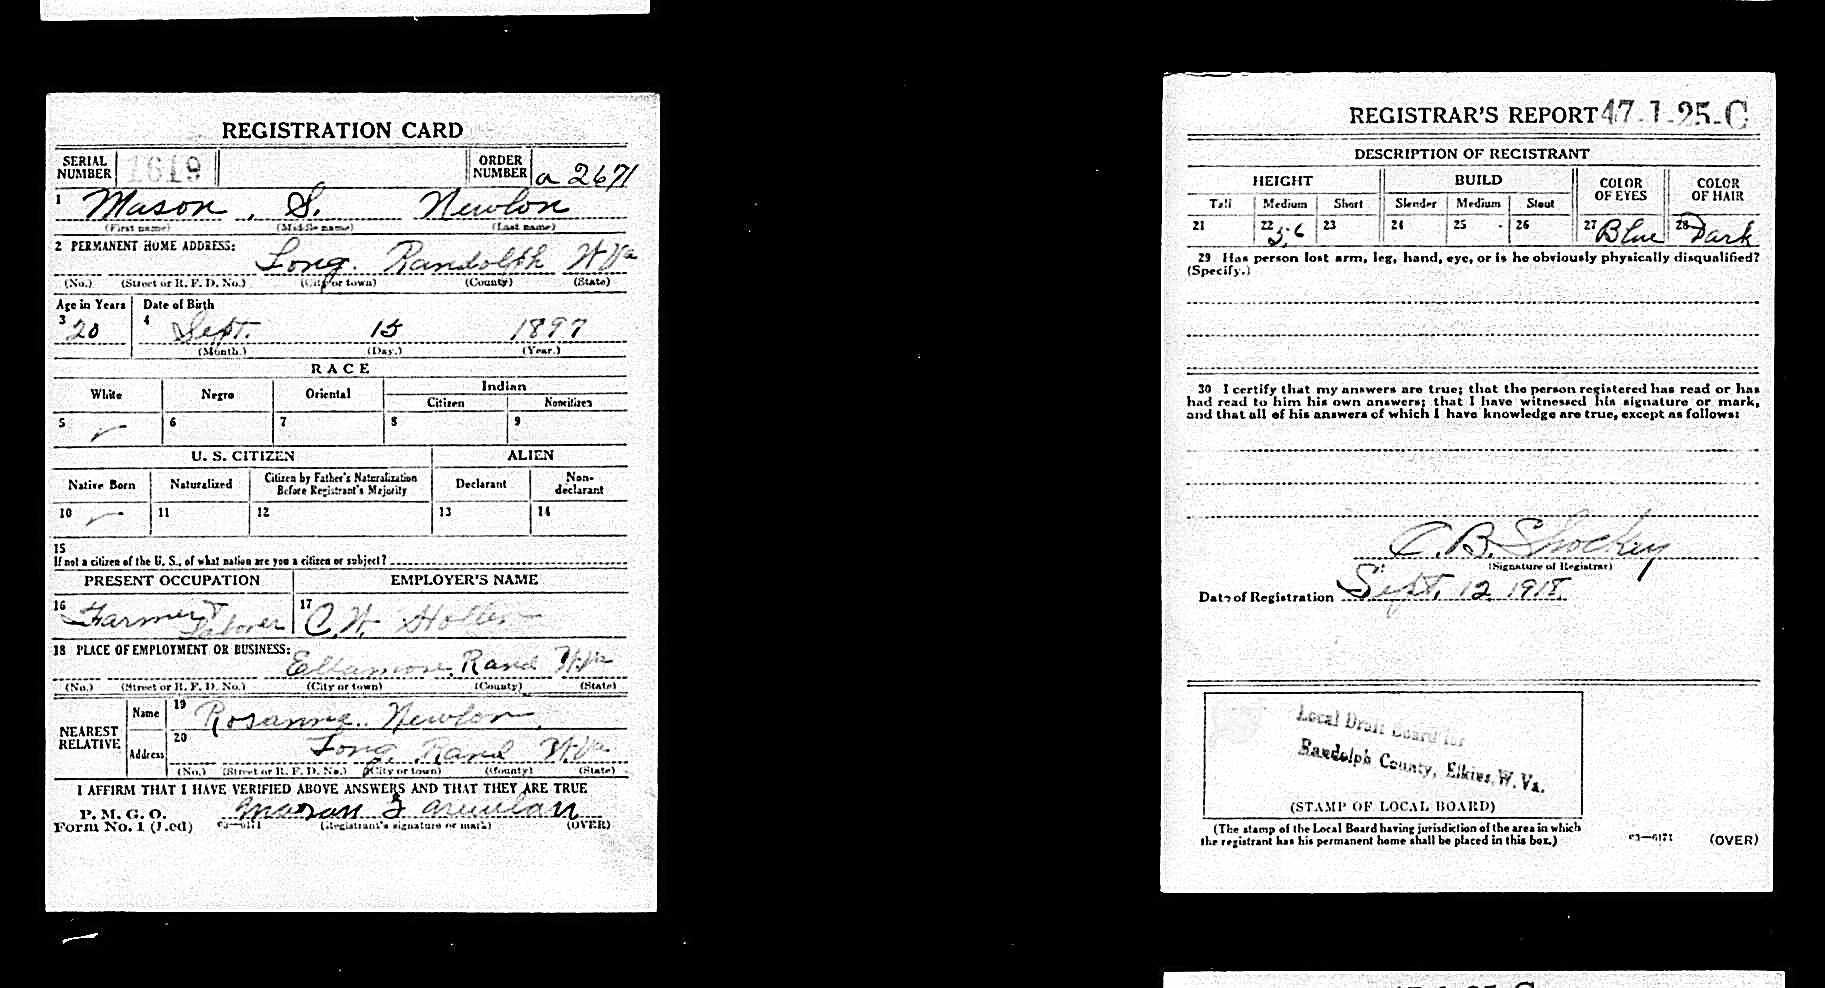 REGISTRATION CARD
SERIAL NUMBER 1619 ORDER NUMBER a 2671
1 Mason, S. Newlon
(First name) (Middle name) (Last name)
2 PERMANENT HOME ADDRESS:
Long. Randolph W Va
(No.) (Street or R. F. D. No.) (City or town) (County) (State)
Age in Years Date of Birth
3 20 4 Sept. 15 1897
(Month.) (Day.) (Year.)
RACE
White Negro Oriental Indian
Citizen Noncitizen
5 6 7 8 9
U. S. CITIZEN ALIEN
Native Born Naturalized Citizen by Father's Naturalization Before Registrant's Majority Declarant Non-declarant
10 11 12 13 14
15
If not a citizen of the U. S., of what nation are you a citizen or subject?
PRESENT OCCUPATION EMPLOYER'S NAME
16 Farmer Laborer 17 C. W.
18 PLACE OF EMPLOYMENT OR BUSINESS:
Rand W. Va
(No.) (Street or R. F. D. No.) (City or town) (County) (State)
NEAREST RELATIVE Name 19 Newlon
Address 20 Long, Rand W. Va
(No.) (Street or R. F. D. No.) (City or town) (County) (State)
I AFFIRM THAT I HAVE VERIFIED ABOVE ANSWERS AND THAT THEY ARE TRUE
P. M. G. O.
Form No. 1 (Red) 03—6171 (Registrant's signature or mark) (OVER)
REGISTRAR'S REPORT 47-1-25-C
DESCRIPTION OF REGISTRANT
HEIGHT BUILD COLOR OF EYES COLOR OF HAIR
Tall Medium Short Slender Medium Stout
21 22 5.6 23 24 25 26 27 Blue 28 Dark
29 Has person lost arm, leg, hand, eye, or is he obviously physically disqualified?
(Specify.)
30 I certify that my answers are true; that the person registered has read or has
had read to him his own answers; that I have witnessed his signature or mark,
and that all of his answers of which I have knowledge are true, except as follows:
C. B. Shockey
(Signature of Registrar)
Date of Registration Sept. 12 1918.
Local Draft Board for
Randolph County, Elkins, W. Va.
(STAMP OF LOCAL BOARD)
(The stamp of the Local Board having jurisdiction of the area in which
the registrant has his permanent home shall be placed in this box.)
03—6171 (OVER)